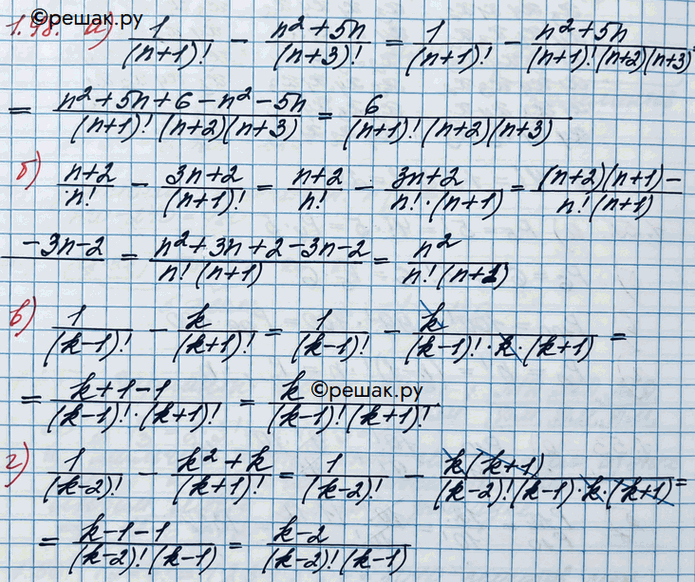 ©решак.ру
1.48. а) 1/(n+1)! − (n²+5n)/(n+3)! = 1/(n+1)! − (n²+5n)/((n+1)!(n+2)(n+3))
= (n²+5n+6−n²−5n)/((n+1)!(n+2)(n+3)) = 6/((n+1)!(n+2)(n+3))
б) (n+2)/n! − (3n+2)/(n+1)! = (n+2)/n! − (3n+2)/(n!·(n+1)) = ((n+2)(n+1)−)/(n!(n+1))
−3n−2 = (n²+3n+2−3n−2)/(n!(n+1)) = n²/(n!(n+1))
в) 1/(k−1)! − k/(k+1)! = 1/(k−1)! − k/((k−1)!·k·(k+1)) =
= (k+1−1)/((k−1)!·(k+1)!) = k/((k−1)!(k+1)!)
©решак.ру
г) 1/(k−2)! − (k²+k)/(k+1)! = 1/(k−2)! − k(k+1)/((k−2)!(k−1)·k·(k+1)) =
= (k−1−1)/((k−2)!(k−1)) = (k−2)/((k−2)!(k−1))